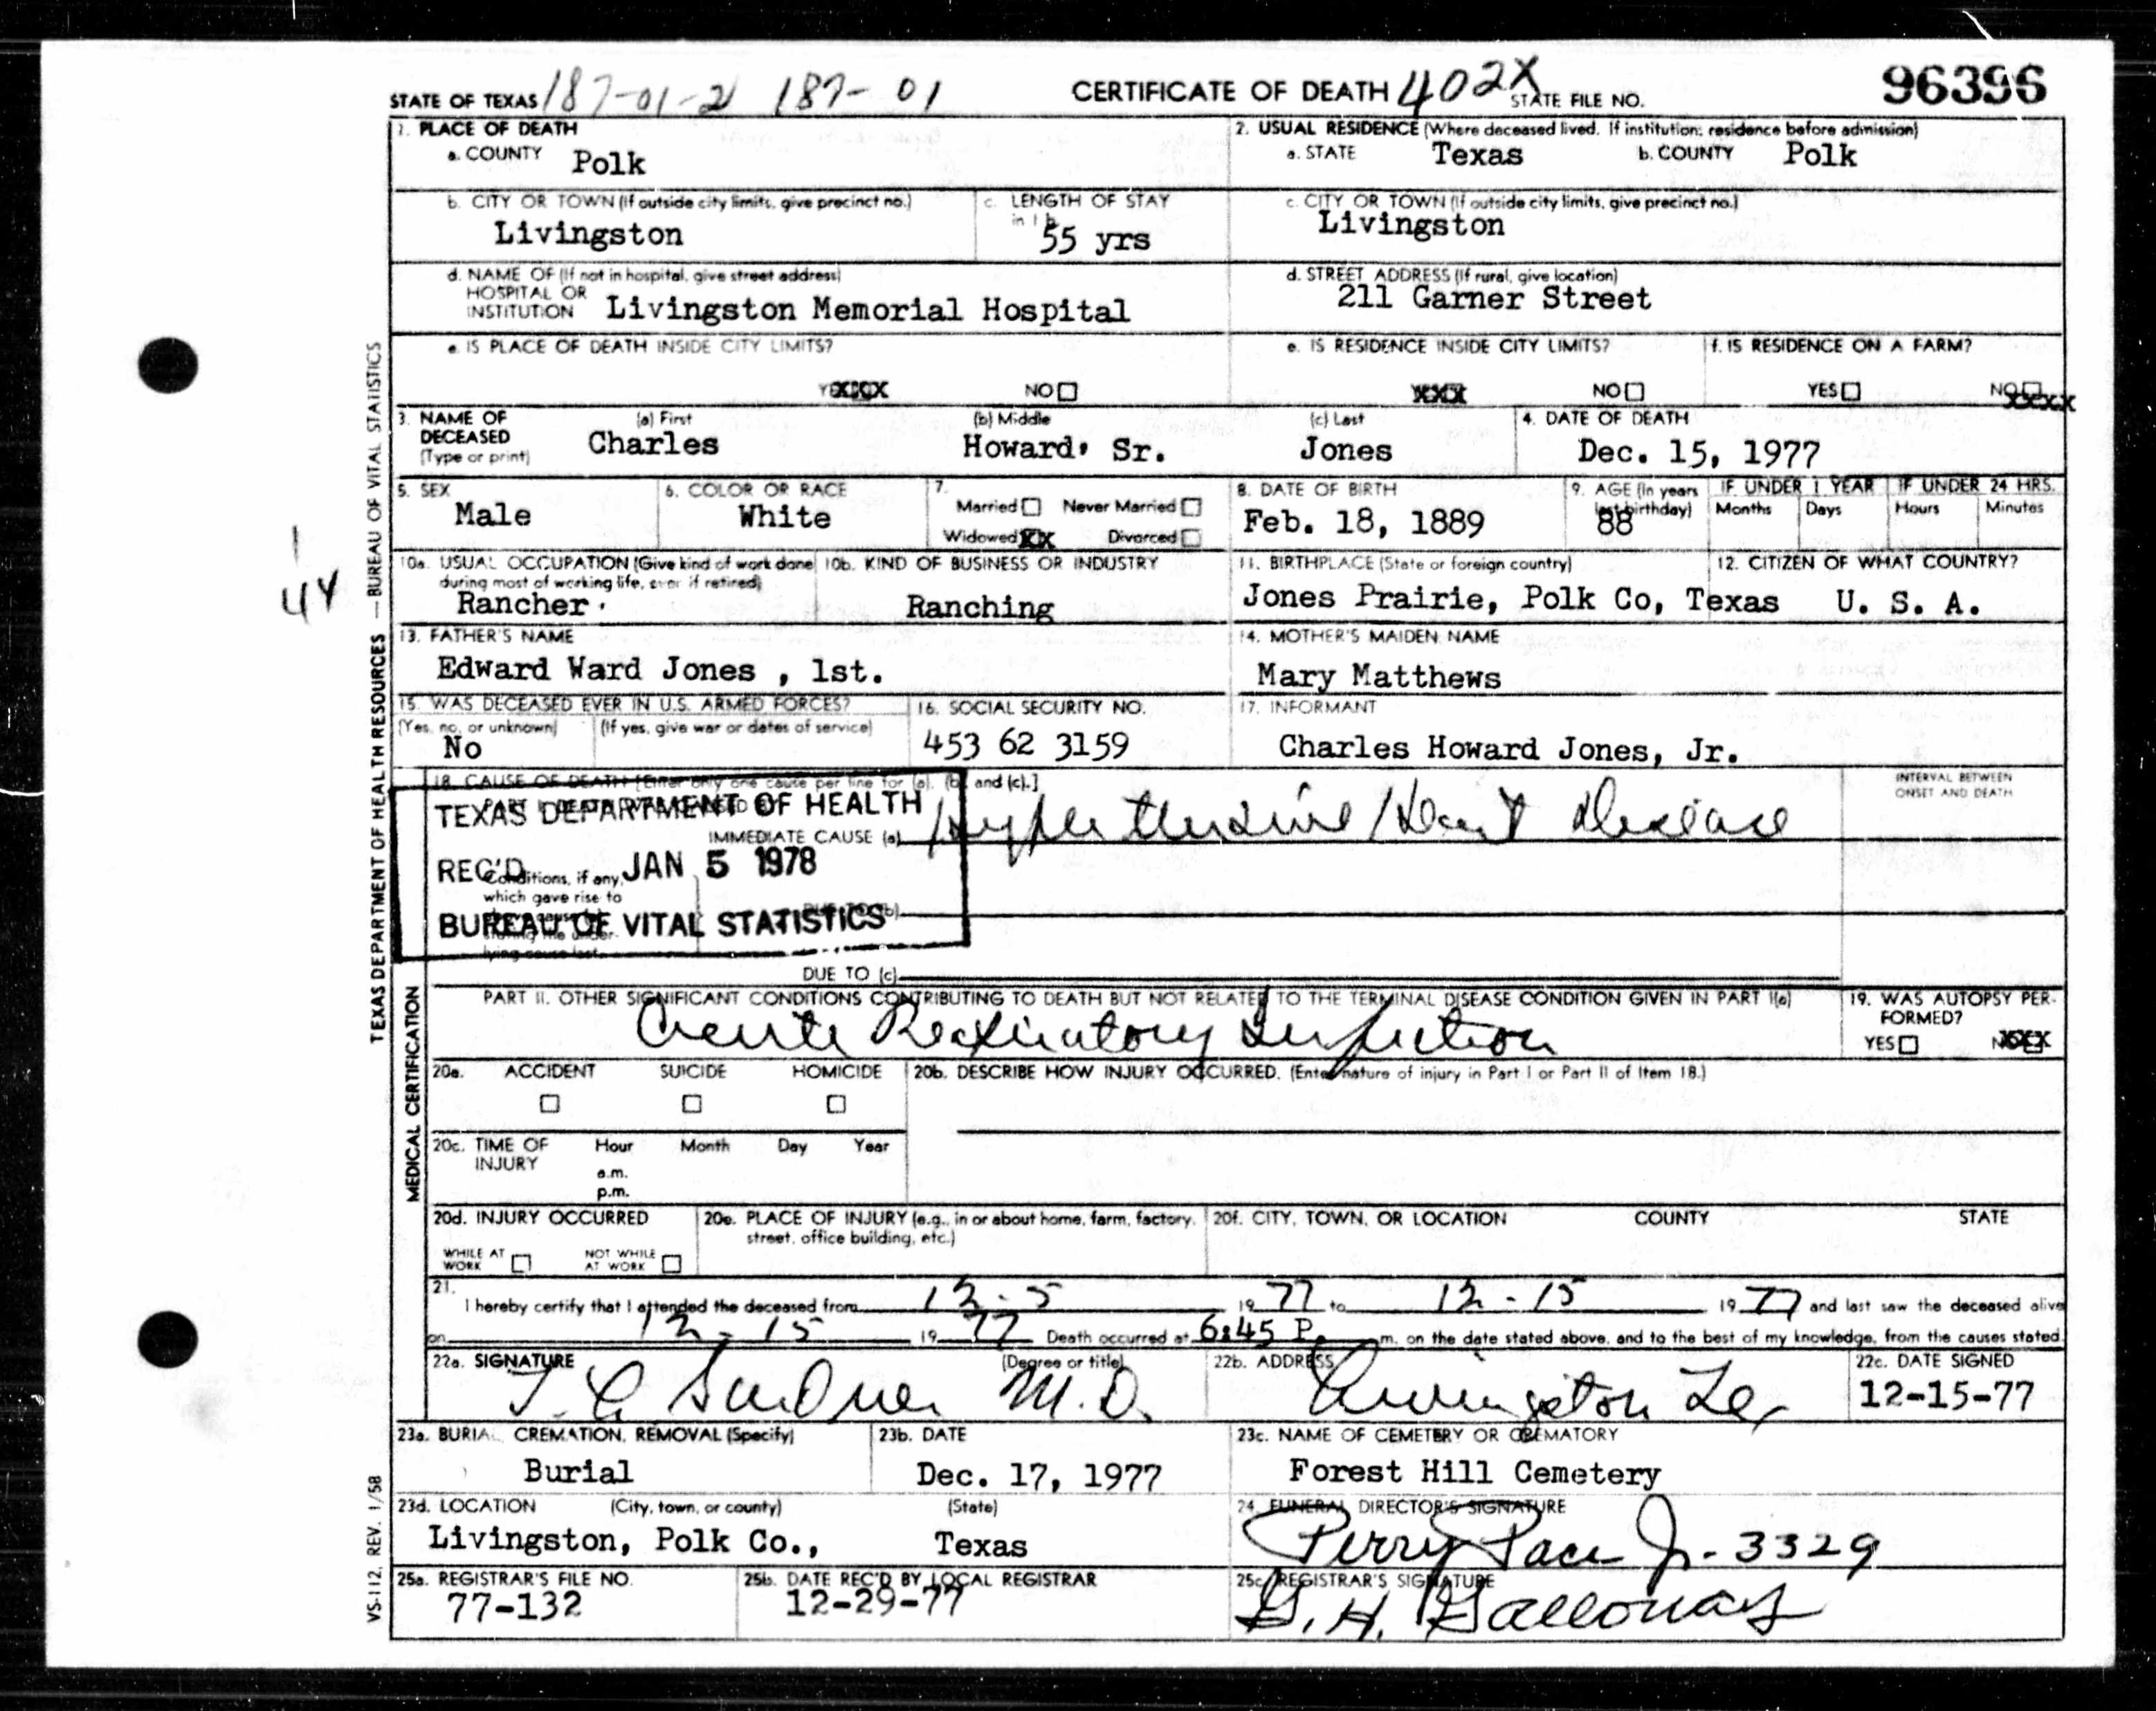 STATE OF TEXAS 187-01-2 187-01 CERTIFICATE OF DEATH 402X STATE FILE NO. 96396
1. PLACE OF DEATH
a. COUNTY Polk
2. USUAL RESIDENCE (Where deceased lived. If institution: residence before admission)
a. STATE Texas b. COUNTY Polk
b. CITY OR TOWN (If outside city limits, give precinct no.)
Livingston
c. LENGTH OF STAY
in 1 b
55 yrs
c. CITY OR TOWN (If outside city limits, give precinct no.)
Livingston
d. NAME OF (If not in hospital, give street address)
HOSPITAL OR
INSTITUTION Livingston Memorial Hospital
d. STREET ADDRESS (If rural, give location)
211 Garner Street
e. IS PLACE OF DEATH INSIDE CITY LIMITS?
YES XXX NO
e. IS RESIDENCE INSIDE CITY LIMITS?
XXX NO
f. IS RESIDENCE ON A FARM?
YES NO XXXX
3. NAME OF
DECEASED
(Type or print)
(a) First
Charles
(b) Middle
Howard, Sr.
(c) Last
Jones
4. DATE OF DEATH
Dec. 15, 1977
5. SEX
Male
6. COLOR OR RACE
White
7.
Married Never Married
Widowed XX Divorced
8. DATE OF BIRTH
Feb. 18, 1889
9. AGE (In years
last birthday)
88
IF UNDER 1 YEAR
Months Days
IF UNDER 24 HRS.
Hours Minutes
10a. USUAL OCCUPATION (Give kind of work done
during most of working life, even if retired)
Rancher
10b. KIND OF BUSINESS OR INDUSTRY
Ranching
11. BIRTHPLACE (State or foreign country)
Jones Prairie, Polk Co, Texas
12. CITIZEN OF WHAT COUNTRY?
U. S. A.
13. FATHER'S NAME
Edward Ward Jones , 1st.
14. MOTHER'S MAIDEN NAME
Mary Matthews
15. WAS DECEASED EVER IN U.S. ARMED FORCES?
(Yes, no, or unknown) (If yes, give war or dates of service)
No
16. SOCIAL SECURITY NO.
453 62 3159
17. INFORMANT
Charles Howard Jones, Jr.
18. CAUSE OF DEATH [Enter only one cause per line for (a), (b), and (c).]
INTERVAL BETWEEN
ONSET AND DEATH
TEXAS DEPARTMENT OF HEALTH
IMMEDIATE CAUSE (a) Hypertensive Heart Disease
REC'D JAN 5 1978
Conditions, if any,
which gave rise to
BUREAU OF VITAL STATISTICS
lying cause last.
DUE TO (c)
PART II. OTHER SIGNIFICANT CONDITIONS CONTRIBUTING TO DEATH BUT NOT RELATED TO THE TERMINAL DISEASE CONDITION GIVEN IN PART I(a)
Acute Respiratory Infection
19. WAS AUTOPSY PER-
FORMED?
YES NO XXX
20a. ACCIDENT SUICIDE HOMICIDE
20b. DESCRIBE HOW INJURY OCCURRED. (Enter nature of injury in Part I or Part II of Item 18.)
20c. TIME OF
INJURY
Hour Month Day Year
a.m.
p.m.
20d. INJURY OCCURRED
WHILE AT
WORK
NOT WHILE
AT WORK
20e. PLACE OF INJURY (e.g., in or about home, farm, factory,
street, office building, etc.)
20f. CITY, TOWN, OR LOCATION COUNTY STATE
21.
I hereby certify that I attended the deceased from 12-5 19 77 to 12-15 19 77 and last saw the deceased alive
on 12-15 19 77 Death occurred at 6:45 P. m. on the date stated above, and to the best of my knowledge, from the causes stated.
22a. SIGNATURE (Degree or title)
M.D.
22b. ADDRESS
Livingston Tex
22c. DATE SIGNED
12-15-77
23a. BURIAL, CREMATION, REMOVAL (Specify)
Burial
23b. DATE
Dec. 17, 1977
23c. NAME OF CEMETERY OR CREMATORY
Forest Hill Cemetery
23d. LOCATION (City, town, or county) (State)
Livingston, Polk Co., Texas
24. FUNERAL DIRECTOR'S SIGNATURE
Perry Pace Jr. 3329
25a. REGISTRAR'S FILE NO.
77-132
25b. DATE REC'D BY LOCAL REGISTRAR
12-29-77
25c. REGISTRAR'S SIGNATURE
G. H. Galloway
TEXAS DEPARTMENT OF HEALTH RESOURCES — BUREAU OF VITAL STATISTICS
MEDICAL CERTIFICATION
VS-112, REV. 1/58